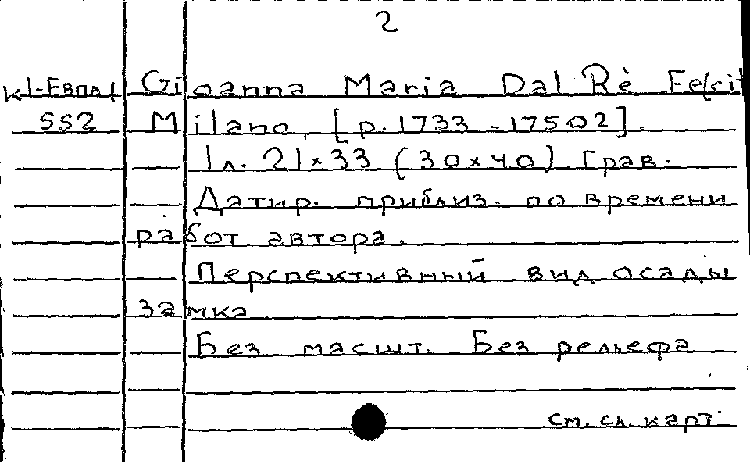 2
Gioanna Maria Dal Rè Felcit
552 Milano, [p. 1733 - 17502].
1л. 21×33 (30×40) Грав.
Датир. приблиз. по времени
работ автора.
Перспективный вид осады
замка
Без масшт. Без рельефа
см. сл. карт.